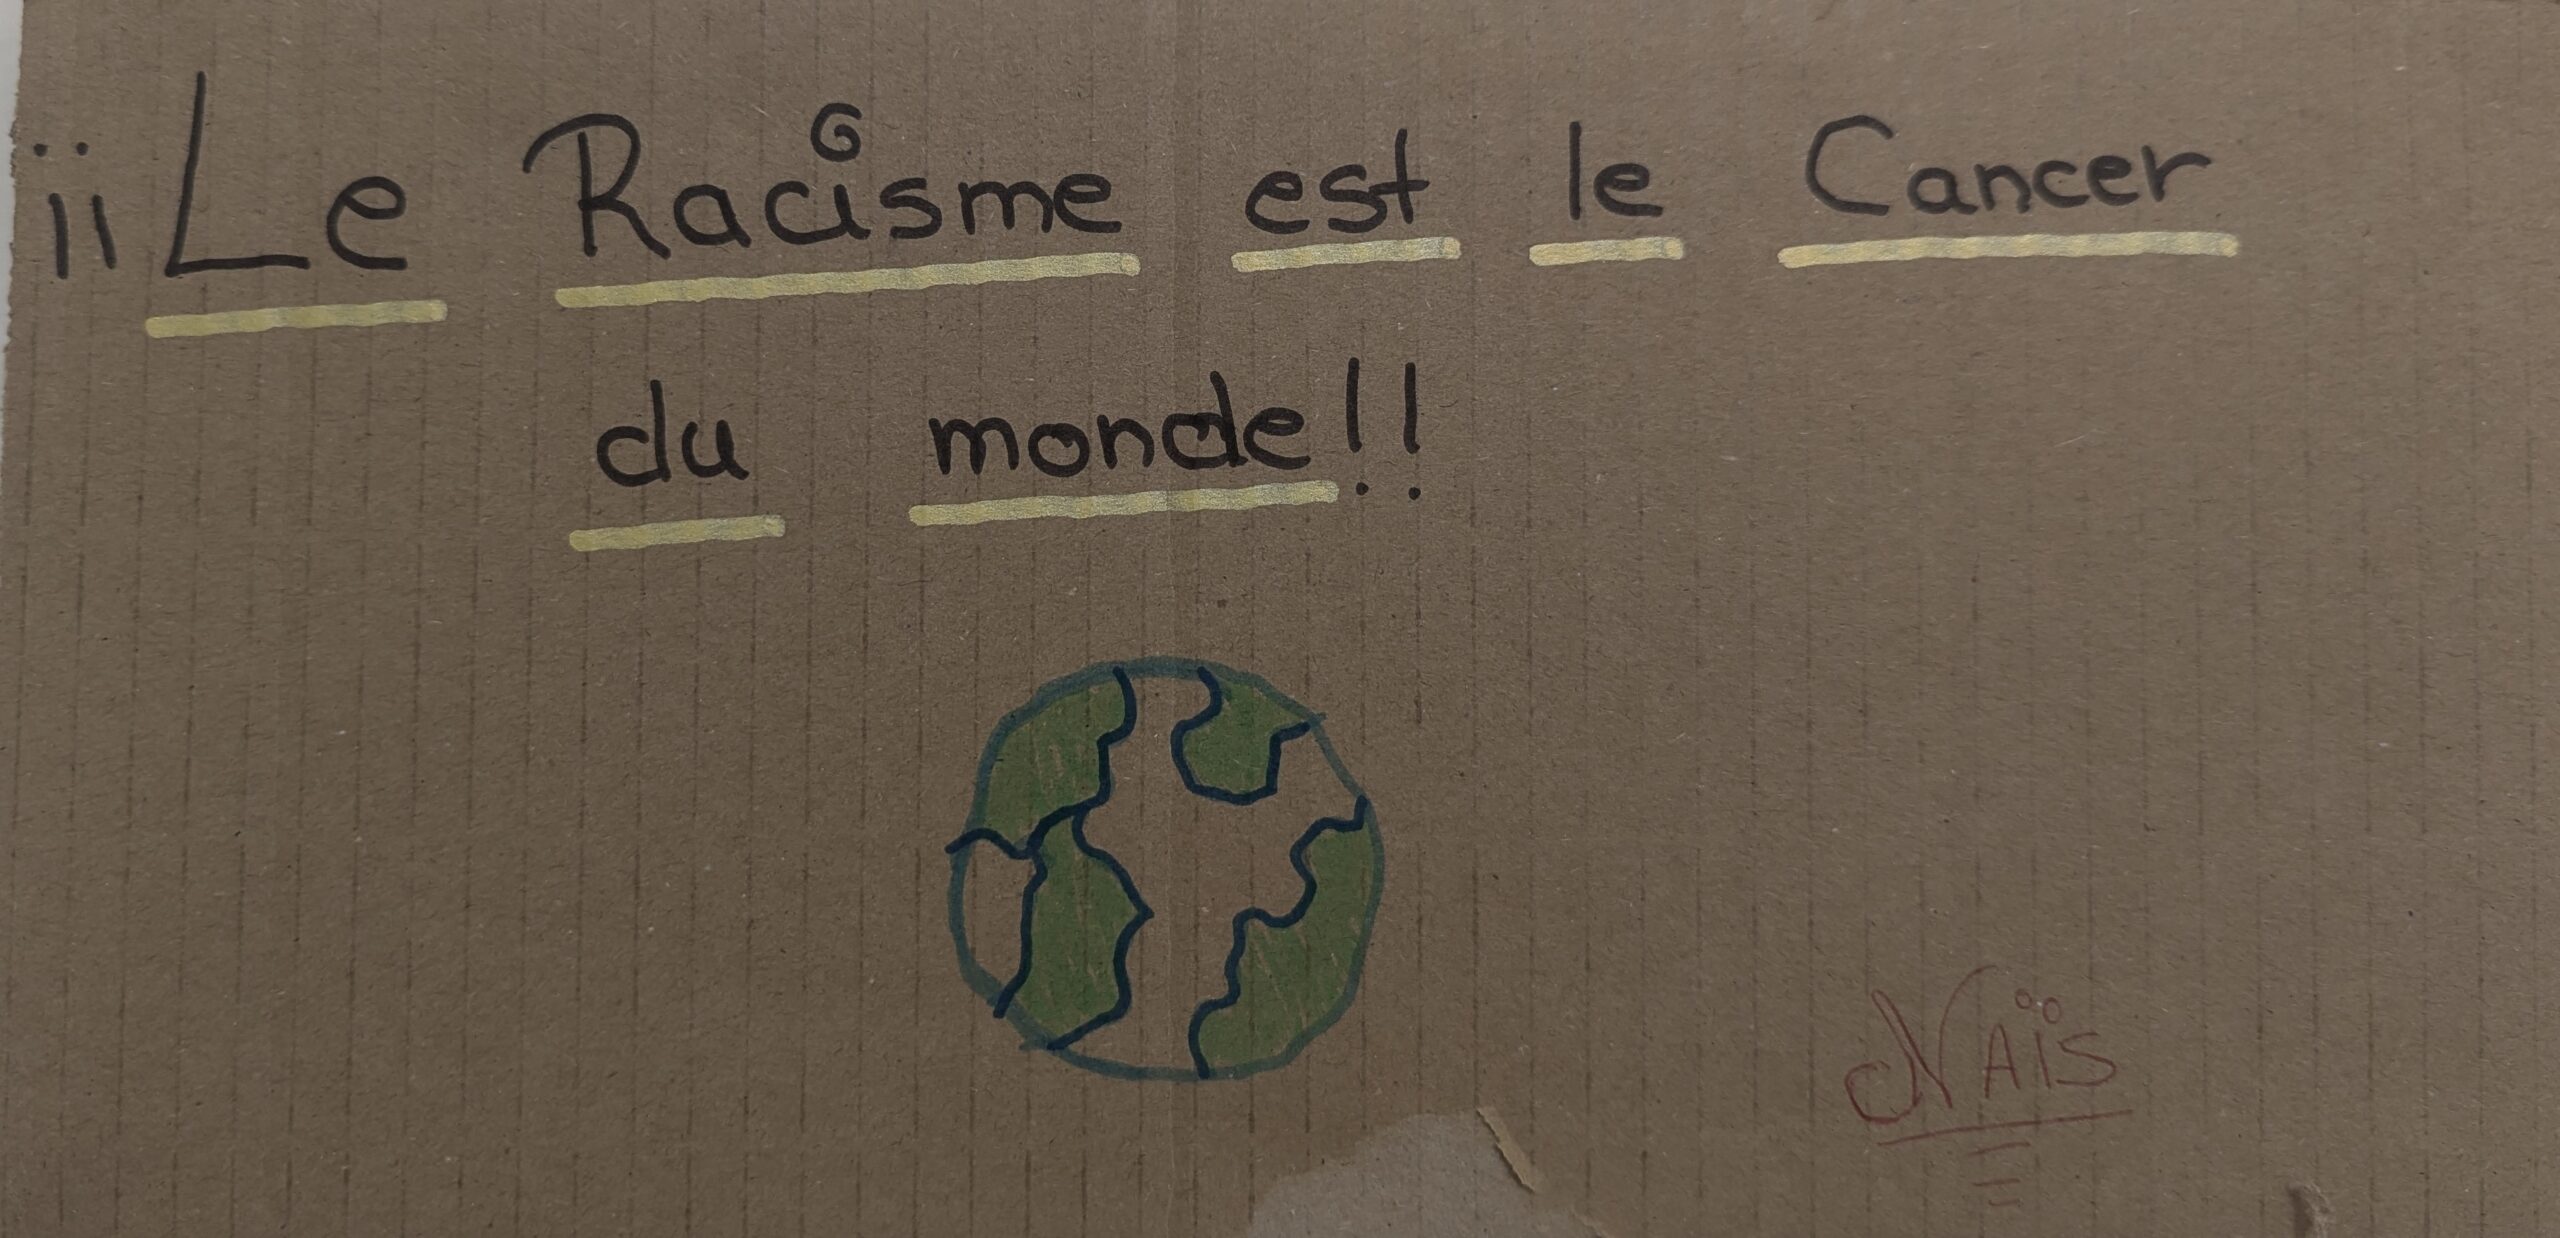 ¡¡Le Racisme est le Cancer
du monde!!
Naïs